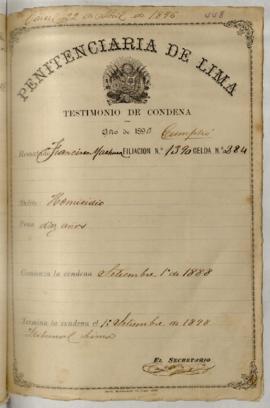 22 de Abril de 1896 448
PENITENCIARIA DE LIMA
TESTIMONIO DE CONDENA
Año de 1890 Cumplió
Francisco FILIACION N.º 1390 CELDA N.º 284
Delito Homicidio
Pena diez años
Comienza la condena Setiembre 1º de 1888
Termina la condena el 1º Setiembre de 1898
Tribunal Lima
EL SECRETARIO